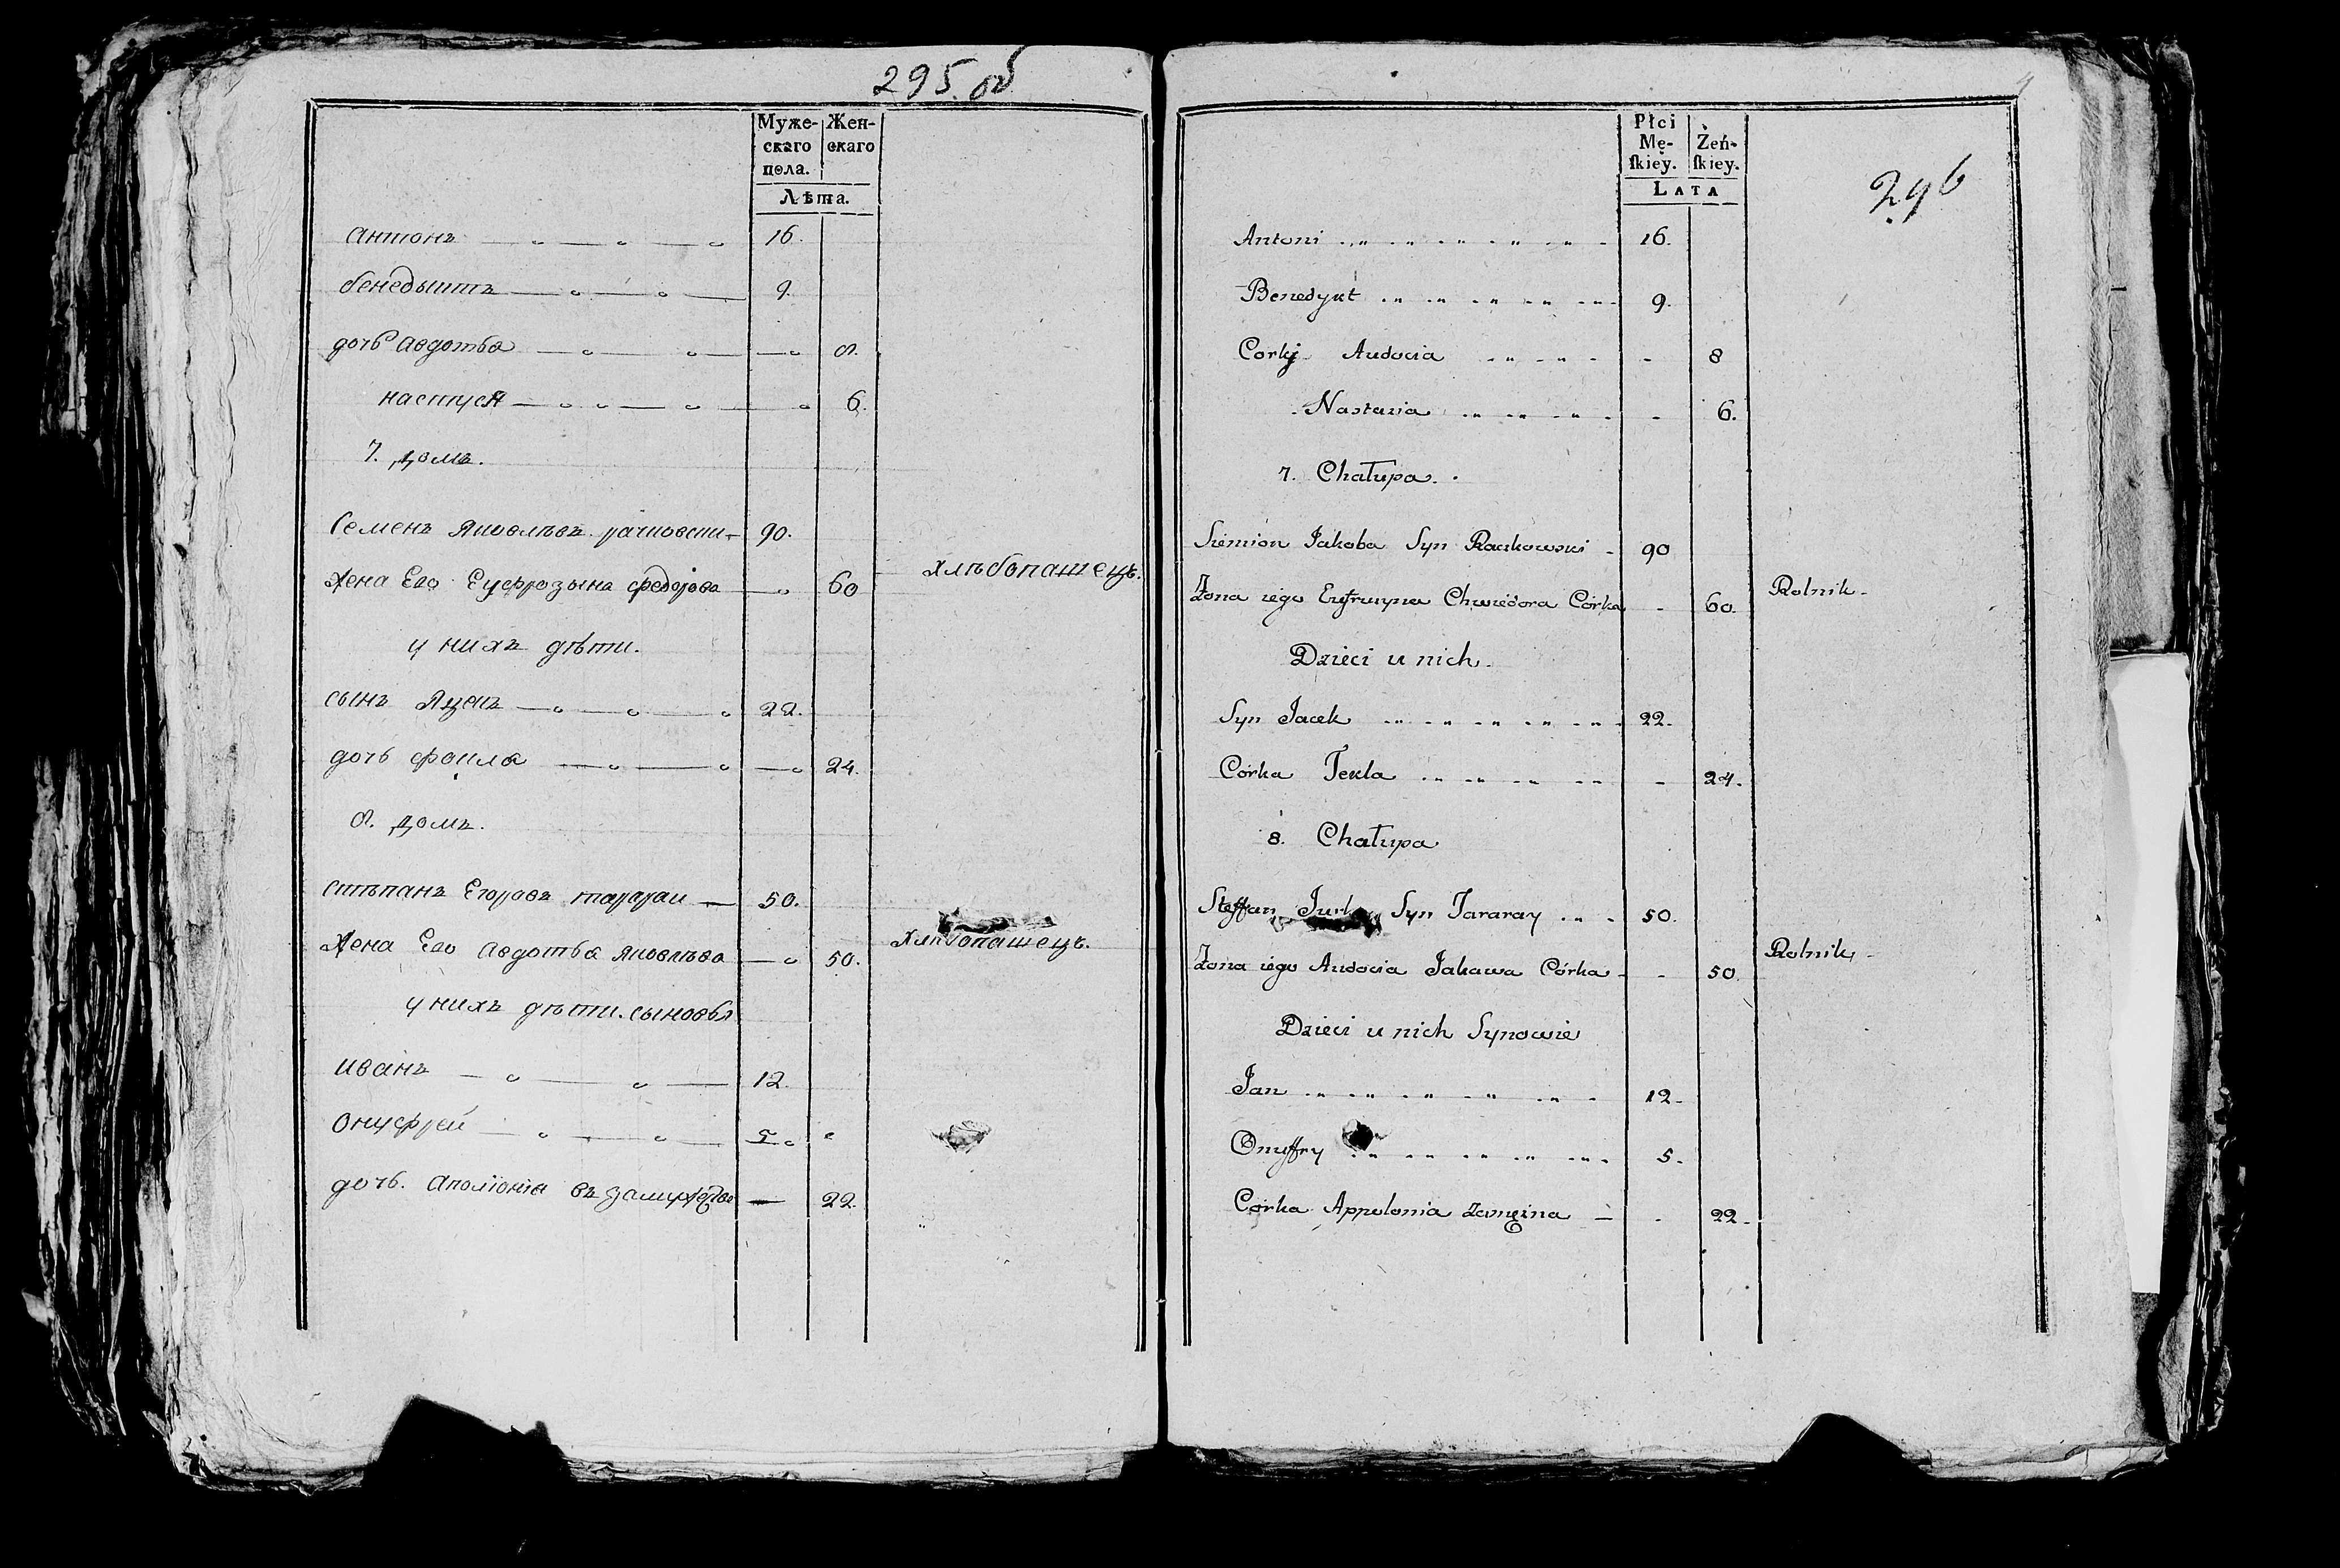 295 об
Муже- Жен-
скаго скаго
пола.
Лѣта.
Антонъ 16.
бенедыктъ 9.
дочь Авдотьа 8.
настуся 6.
7. домъ.
Семенъ Яковлѣвъ рачковски 90.
Жена Его Еуфрозына федорова 60 хлѣбопашецъ.
у нихъ дѣти.
сынъ Яцекъ 22.
дочь фекла 24.
8. домъ.
стѣпанъ Егоровъ тарараи 50.
Жена Его Авдотьа Яковлѣва 50. хлѣбопашецъ.
у нихъ дѣти. сыновья
Иванъ 12.
Онуфрей 5
дочь. Аполіоніа въ замужество 22.
296
Płci
Mę- Żeń-
ſkiey. ſkiey.
LATA
Antoni 16.
Benedykt 9.
Corki Audocia 8
Nastazia 6.
7. Chałupa.
Siemion Jakoba Syn Raczkowski 90
Żona iego Eufruzyna Chwiedora Córka 60. Rolnik
Dzieci u nich.
Syn Jacek 22.
Córka Tekla 24.
8. Chałupa
Steffan Syn Tararay 50.
Żona iego Audocia Jakawa Córka 50. Rolnik
Dzieci u nich Synowie
Jan 12
Onuffry 5.
Córka Appolonia zamęzna 22